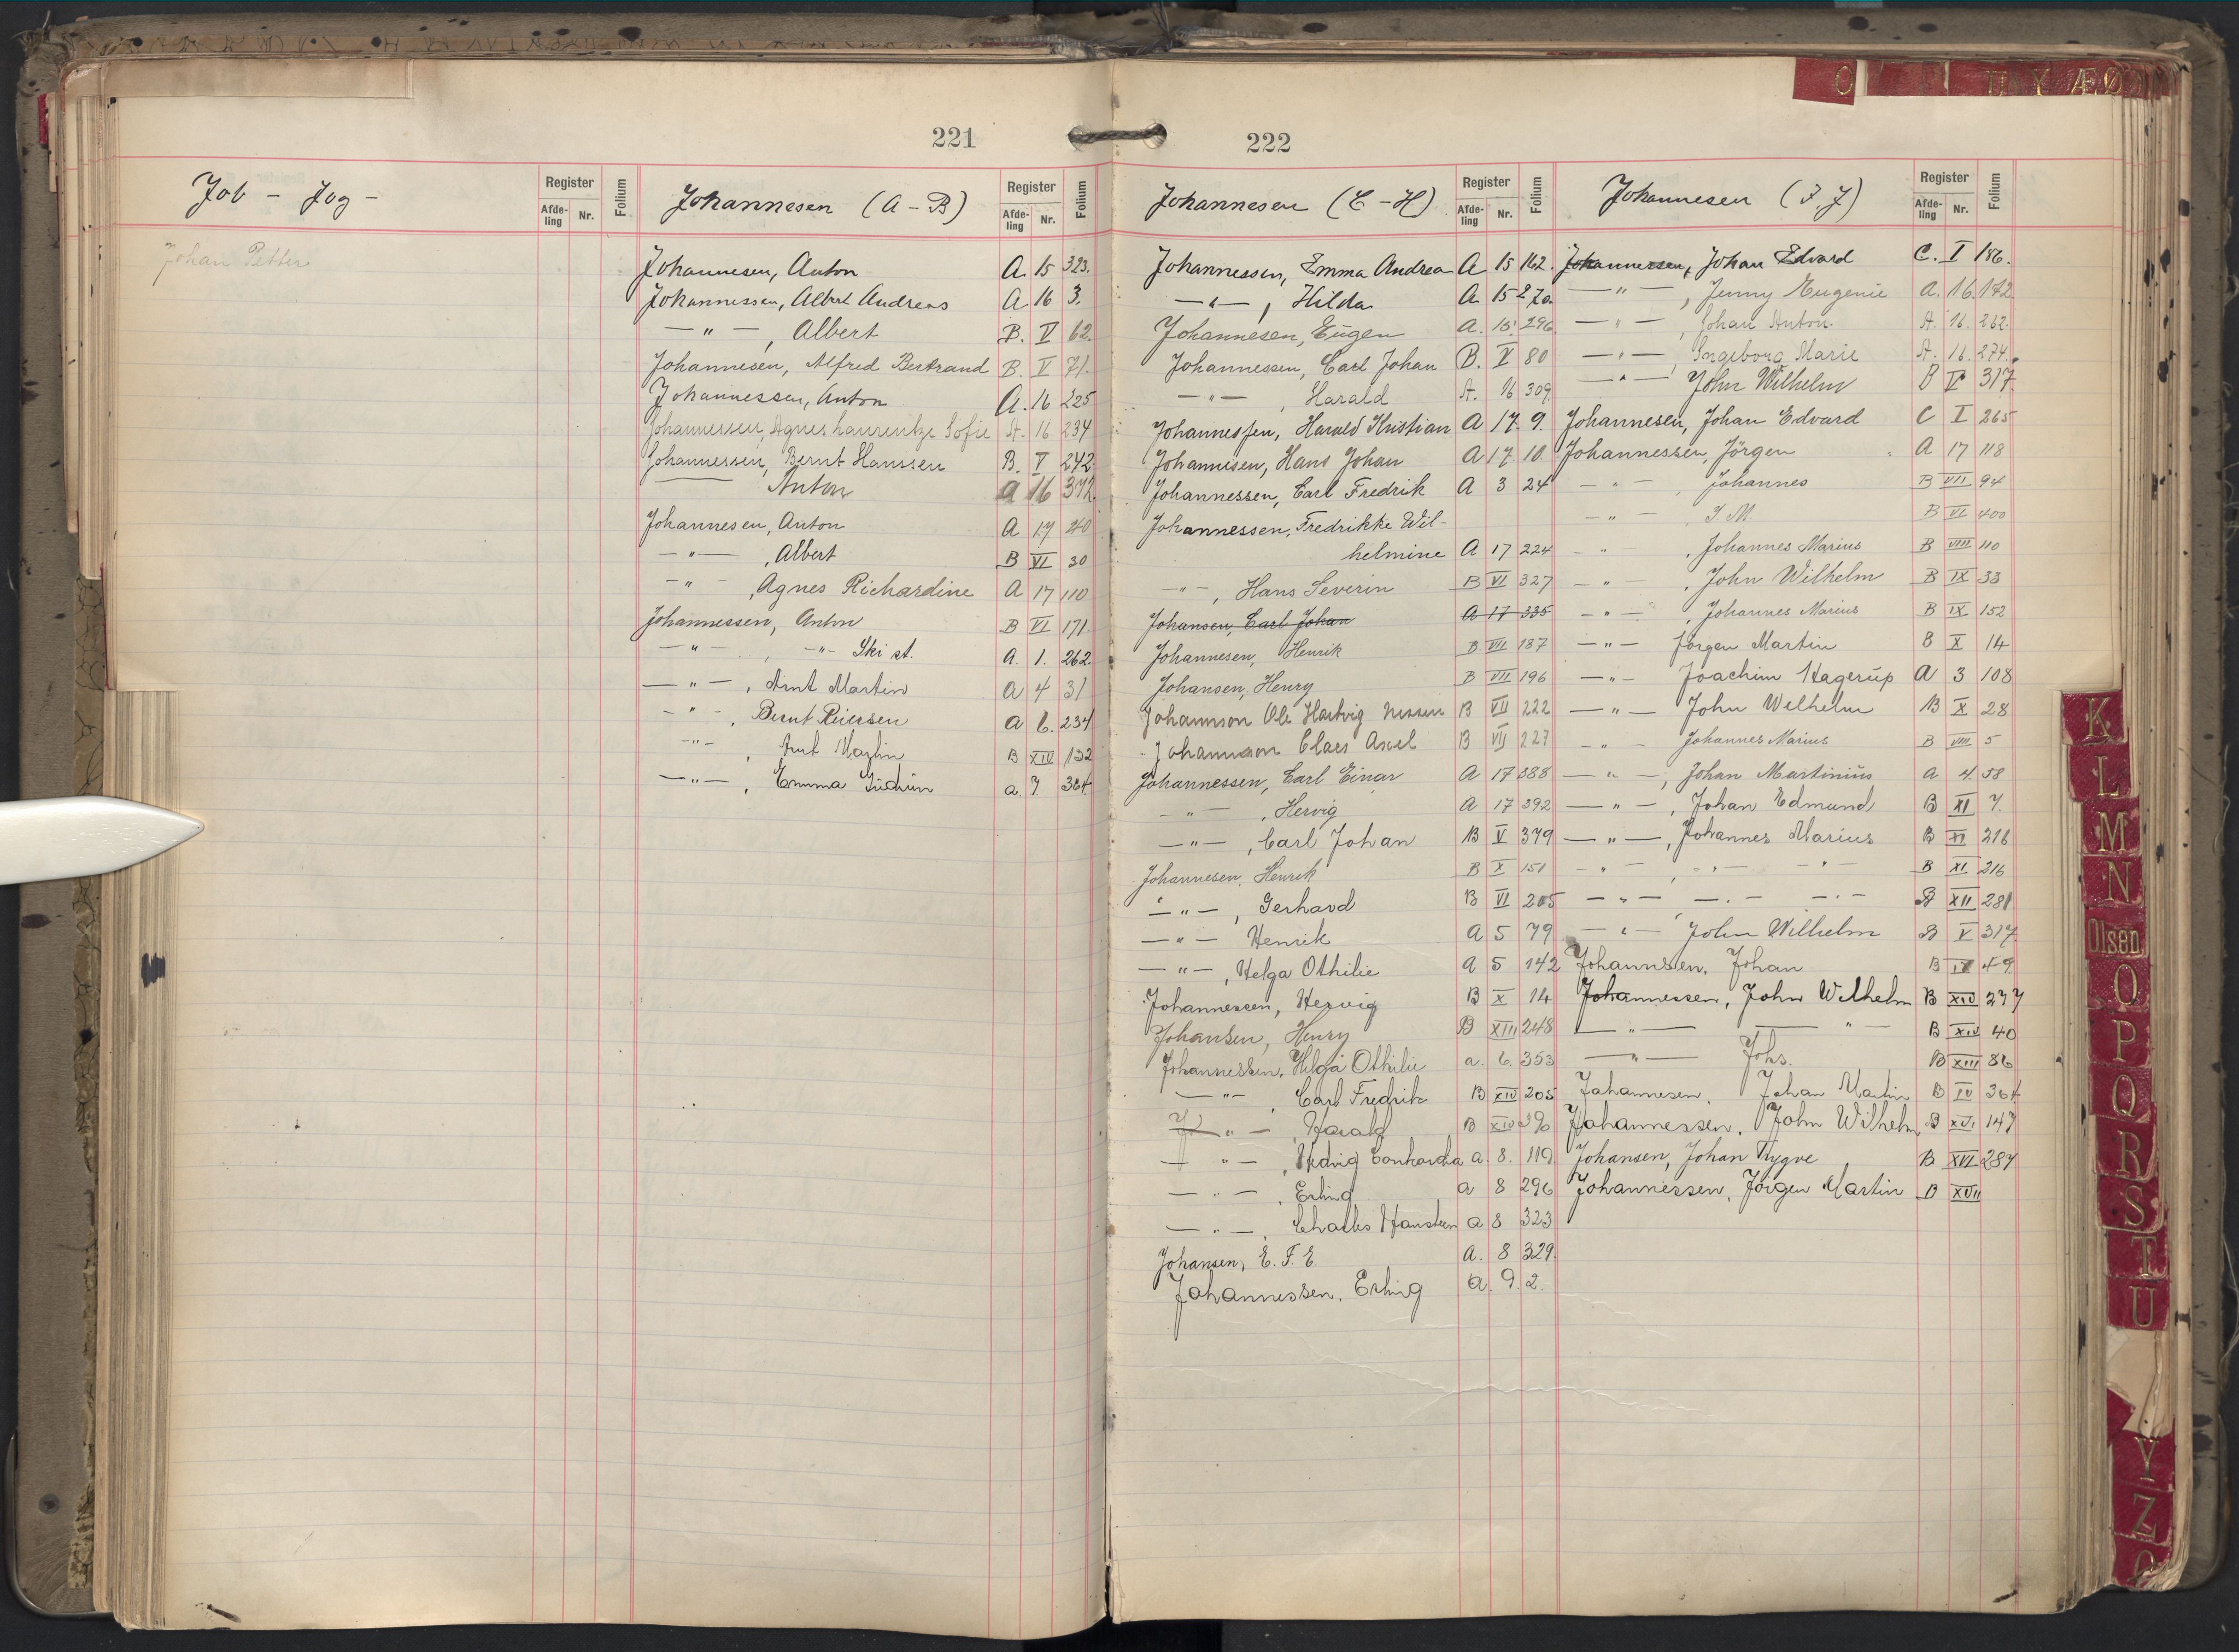 221
Job - Jog -
Register
Afde-
ling
Nr.
Folium
Johan Petter
Johannesen (A - B)
Register
Afde-
ling
Nr.
Folium
Johannesen, Anton A. 15 323.
Johannessen, Albert Andreas A 16 3.
— " — , Albert B. V 62.
Johannesen, Alfred Bertrand B. V 71.
Johannessen, Anton A. 16 225
Johannessen, Agnes Laurentze Sofie A. 16 234
Johannessen, Bernt Hanssen B. V 242
——— Anton A 16 372.
Johannesen, Anton A 17 40
— " — , Albert B VI 30
— " — , Agnes Richardine A 17 110
Johannessen, Anton B VI 171
— " — , — " — Ski st. A. 1. 262.
— " — , Arnt Martin A 4 31
— " — , Bernt Reiersen A 6. 234
— " — , Arnt Martin B XIV 132
— " — , Emma Gudrun a. 7. 364.
222
Johannesen (C - H)
Register
Afde-
ling
Nr.
Folium
Johannessen, Emma Andrea A 15 162.
— " — , Hilda A. 15 270.
Johannesen, Eugen A. 15. 296
Johannessen, Carl Johan B. V 80
— " — , Harald A. 16 309.
Johannessen, Harald Kristian A 17. 9.
Johannesen, Hans Johan A 17. 10.
Johannessen, Carl Fredrik A 3 24
Johannessen, Fredrikke Wil-
helmine A 17 224
— " — , Hans Severin B VI 327
Johansen, Carl Johan A 17 335
Johannesen, Henrik B VII 187
Johansen, Henry B VII 196
Johannson Ole Hartvig Nissen B VII 222
Johannson Claes Axel B VII 227
Johannessen, Carl Einar A 17 388
— " — , Hervig A 17 392
— " — , Carl Johan B V 379
Johannesen, Henrik B X 151
— " — , Gerhard B VI 205
— " — Henrik A 5 79
— " — , Helga Othilie A 5 142
Johannessen, Hervig B X 14
Johansen, Henry B XIII 248
Johannessen, Helga Othilie a. 6. 353
— " — , Carl Fredrik B XIV 205
— " — , Harald B XIV 396
— " — , Hedvig Conkordia a. 8. 119.
— " — , Erling a 8 296
— " — , Charles Hansteen a 8 323
Johansen, E. F. E. A. 8 329.
Johannessen, Erling a. 9. 2.
Johannesen (I. J)
Register
Afde-
ling
Nr.
Folium
Johannessen, Johan Edvard C. I 186.
— " — , Jenny Eugenie A. 16. 172
— " — , Johan Anton. A. 16. 262.
— " — , Ingeborg Marie A. 16. 274.
— " — John Wilhelm B V 317.
Johannesen, Johan Edvard C I 265
Johannessen, Jörgen A 17 118
— " — , Johannes B VII 94
— " — , I. M. B VI 400
— " — , Johannes Marius B VIII 110
— " — , John Wilhelm B IX 33
— " — , Johannes Marius B IX 152
— " — Jörgen Martin B X 14
— " — Joachim Hagerup A 3 108
— " — John Wilhelm B X 28
— " — Johannes Marius B VIII 5
— " — , Johan Martinius A 4. 58
— " — , Johan Edmund B XI 7.
— " — , Johannes Marius B XI 216
— " — , — " — — " — B XI. 216
— " — — " — — " — B XII 281
— " — John Wilhelm B V 317
Johannsen, Johan B IX 49
Johannessen, John Wilhelm B XIV 237
— " — — " — B XIV 40
— " — Johs. B XIII 86
Johannesen, Johan Martin B IV 364
Johannessen, John Wilhelm B XVI 147
Johansen, Johan Trygve B XVI 287
Johannessen, Jörgen Martin B XVII
O
U
Y
Æ
Ø
K
L
M
N
Olsen
O
P
Q
R
S
T
U
Y
Z